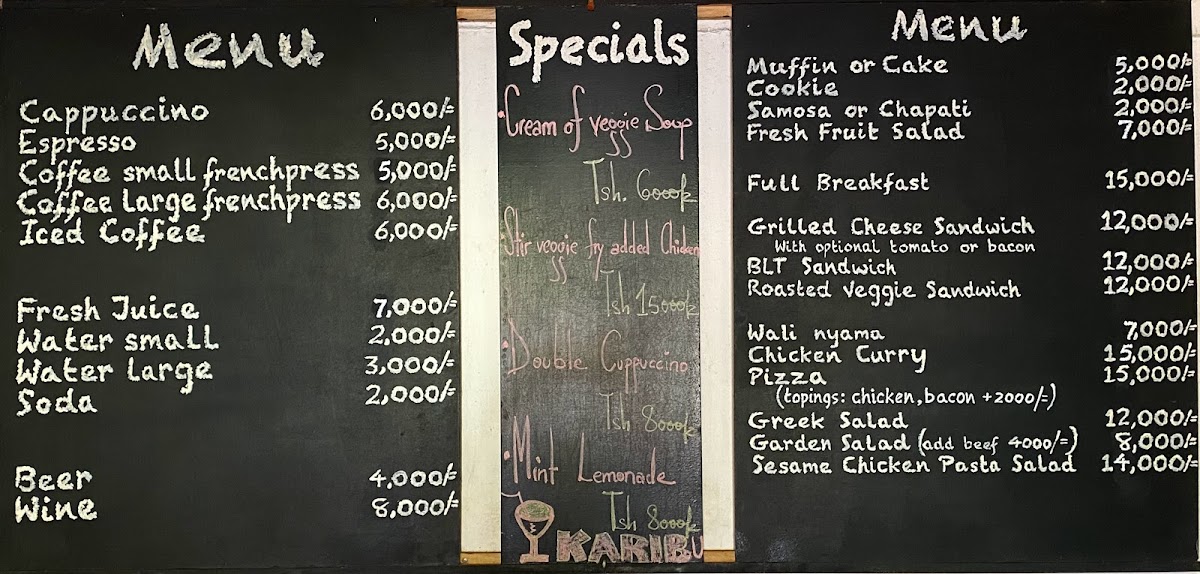 Menu
Cappuccino 6,000/=
Espresso 5,000/=
Coffee small frenchpress 5,000/=
Coffee large frenchpress 6,000/=
Iced Coffee 6,000/=
Fresh Juice 7,000/=
Water small 2,000/=
Water large 3,000/=
Soda 2,000/=
Beer 4,000/=
Wine 8,000/=
Specials
Cream of veggie Soup
Tsh. 6000/=
Stir veggie fry added Chicken
Tsh 15000/=
Double Cuppuccino
Tsh 8000/=
Mint Lemonade
Tsh 8000/=
KARIBU
Menu
Muffin or Cake 5,000/=
Cookie 2,000/=
Samosa or Chapati 2,000/=
Fresh Fruit Salad 7,000/=
Full Breakfast 15,000/=
Grilled Cheese Sandwich 12,000/=
With optional tomato or bacon
BLT Sandwich 12,000/=
Roasted Veggie Sandwich 12,000/=
Wali nyama 7,000/=
Chicken Curry 15,000/=
Pizza 15,000/=
(topings: chicken, bacon +2000/=)
Greek Salad 12,000/=
Garden Salad (add beef 4000/=) 8,000/=
Sesame Chicken Pasta Salad 14,000/=